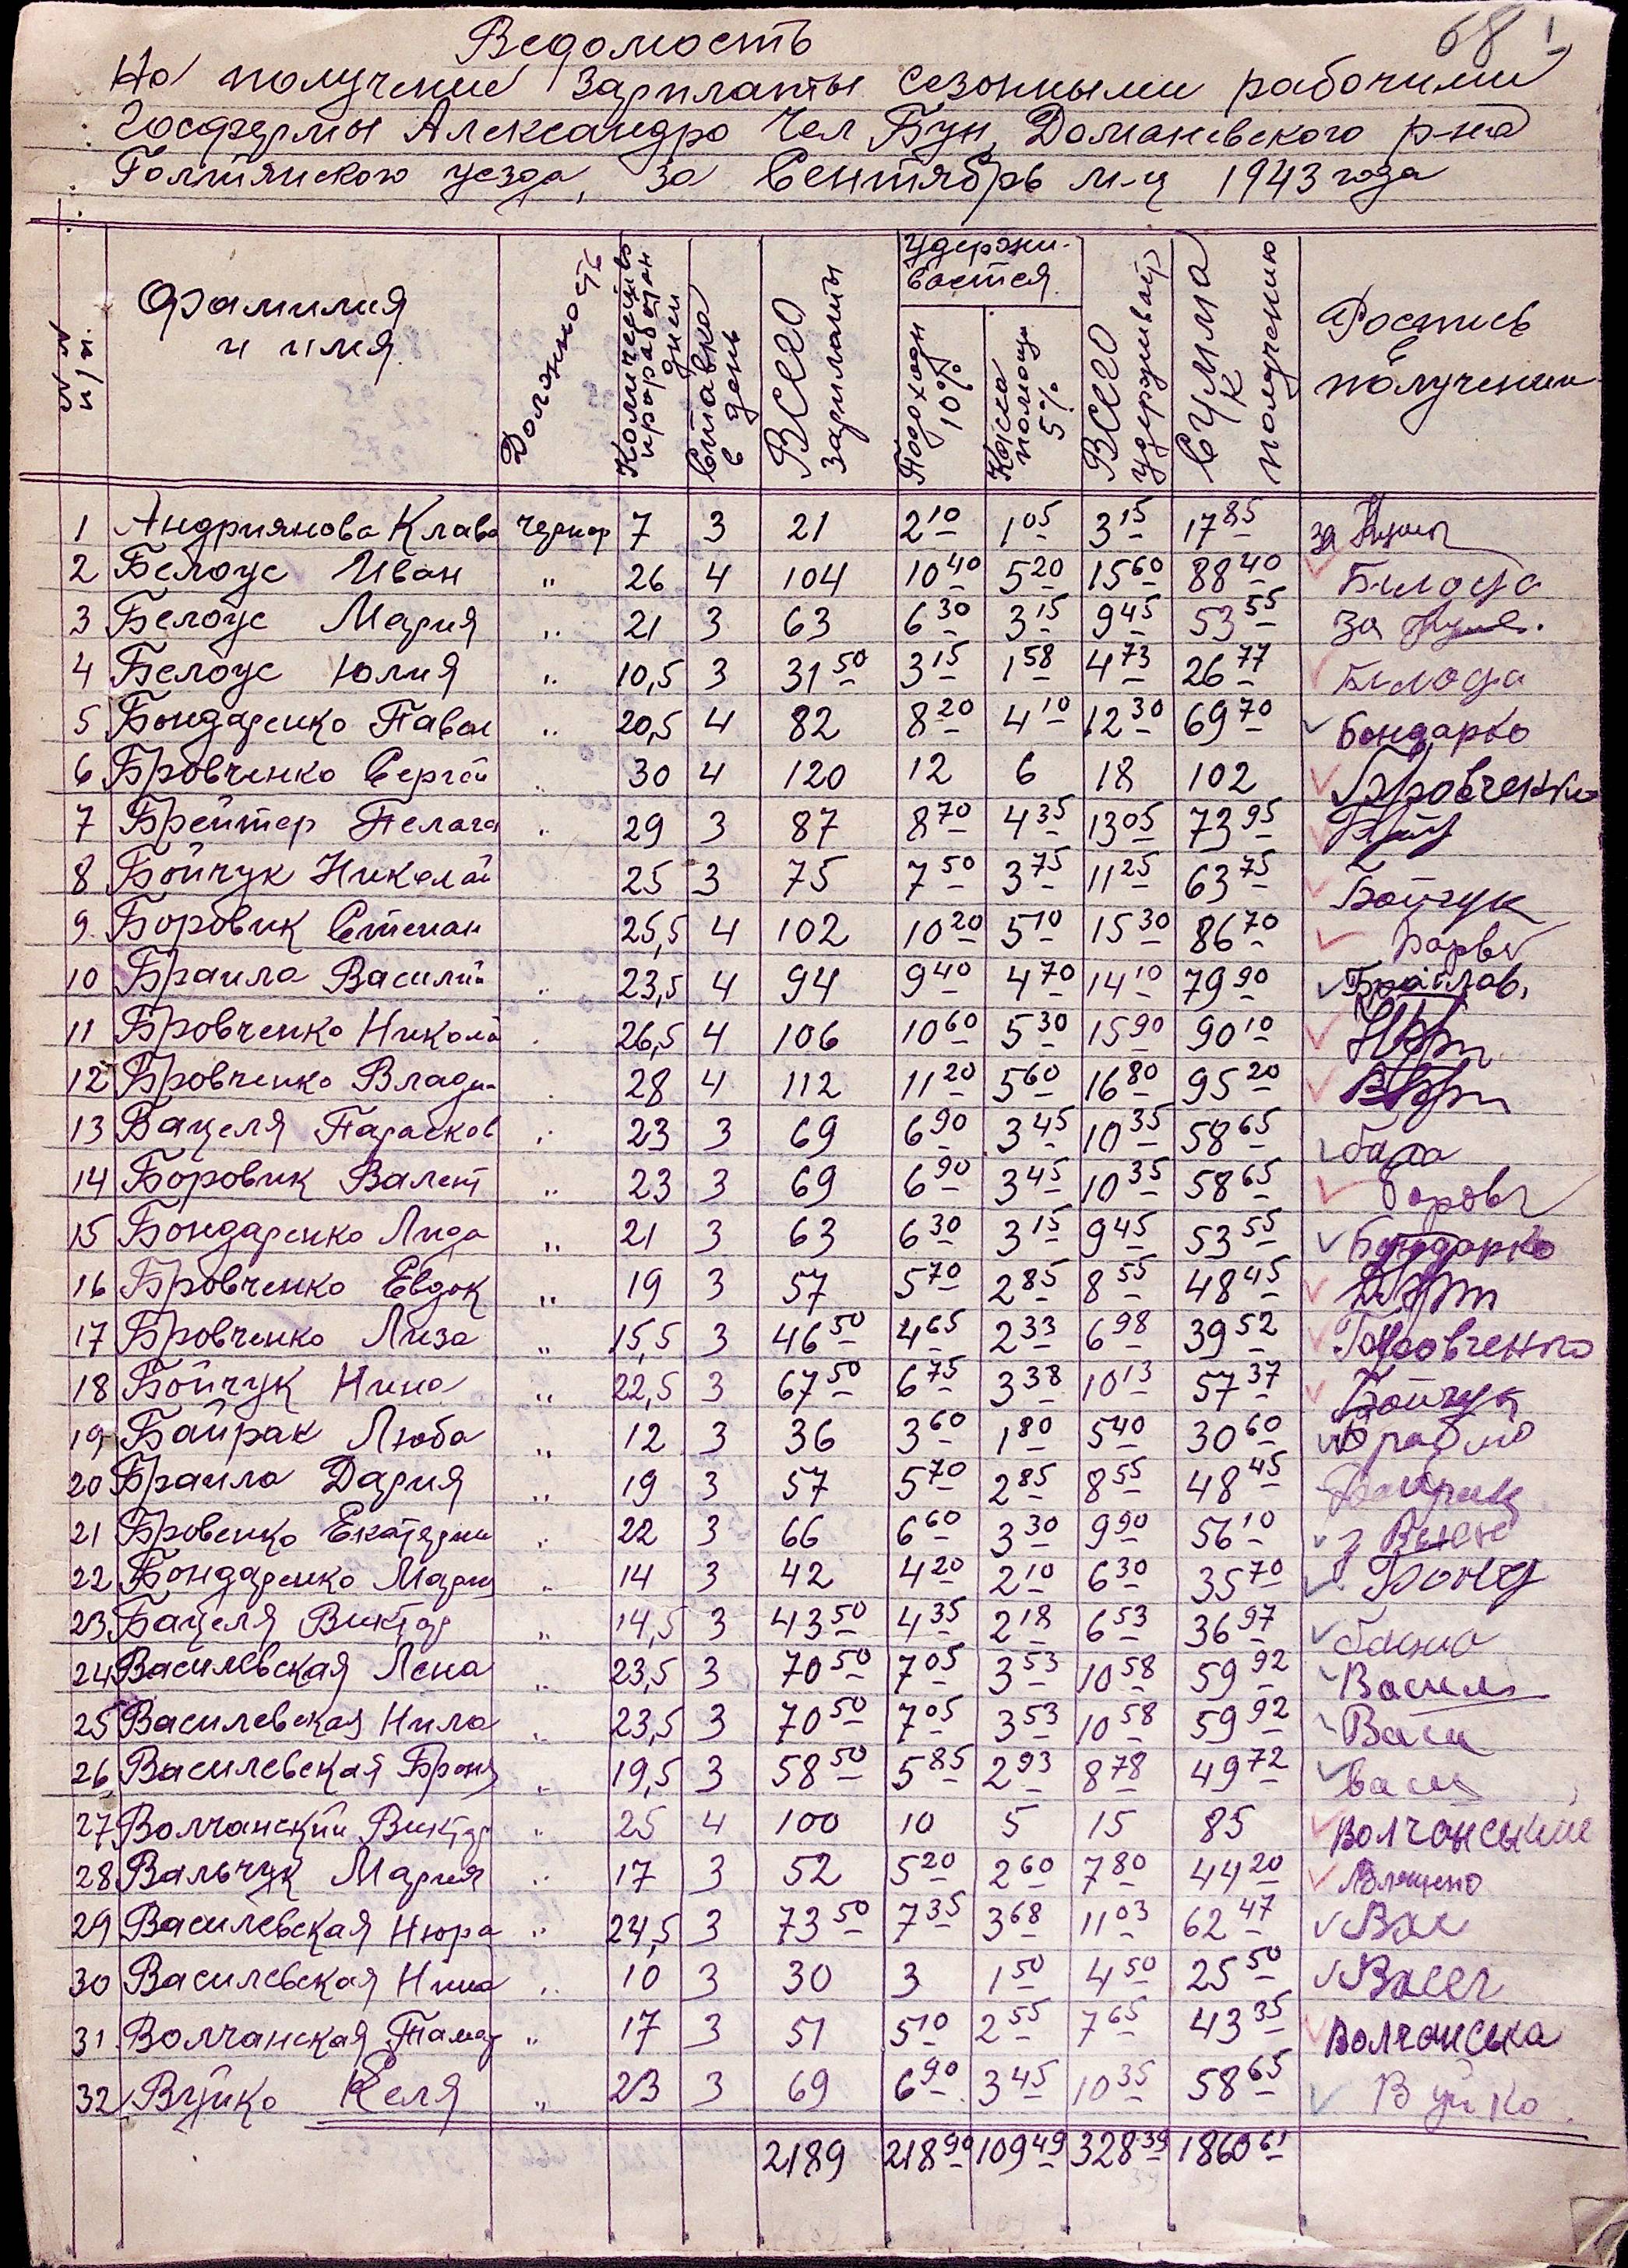 68
Ведомость
На получение зарплаты сезонными рабочими
Госфермы Александро Чел Бун, Доманевского р-на
Голтянского уезда, за Сентябрь м-ц 1943 года
№ № п/п. Фамилия и имя. Должность Количество проработан дней Ставка в день Всего зарплаты Удержи-вается. Подоходн 10% Касса помощи 5% Всего удерживать Сумма к получению Роспись в получении
1 Андриянова Клава Чернор 7 3 21 2 10 1 05 3 15 17 85 за
2 Белоус Иван " 26 4 104 10 40 5 20 15 60 88 40 Білоуса
3 Белоус Мария " 21 3 63 6 30 3 15 9 45 53 55 за
4 Белоус Юлия " 10,5 3 31 50 3 15 1 58 4 73 26 77 Білоуса
5 Бондаренко Павел " 20,5 4 82 8 20 4 10 12 30 69 70 Бондарко
6 Бровченко Сергей " 30 4 120 12 6 18 102 Бровченко
7 Брейтер Пелаге " 29 3 87 8 70 4 35 13 05 73 95
8 Бойчук Николай 25 3 75 7 50 3 75 11 25 63 75 Бойчук
9 Боровик Степан 25,5 4 102 10 20 5 10 15 30 86 70
10 Браила Василий " 23,5 4 94 9 40 4 70 14 10 79 90
11 Бровченко Николай " 26,5 4 106 10 60 5 30 15 90 90 10
12 Бровченко Влади- " 28 4 112 11 20 5 60 16 80 95 20
13 Бацеля Парасков " 23 3 69 6 90 3 45 10 35 58 65
14 Боровик Валент " 23 3 69 6 90 3 45 10 35 58 65
15 Бондаренко Лида " 21 3 63 6 30 3 15 9 45 53 55 Бондарко
16 Бровченко Евдок " 19 3 57 5 70 2 85 8 55 48 45
17 Бровченко Лиза " 15,5 3 46 50 4 65 2 33 6 98 39 52 Бровченко
18 Бойчук Нина " 22,5 3 67 50 6 75 3 38 10 13 57 37 Бойчук
19 Байрак Люба " 12 3 36 3 60 1 80 5 40 30 60
20 Браила Дария " 19 3 57 5 70 2 85 8 55 48 45 Байрак
21 Бровенко Екатерин " 22 3 66 6 60 3 30 9 90 56 10
22 Бондаренко Мария " 14 3 42 4 20 2 10 6 30 35 70 Бонд
23 Бацеля Виктор " 14,5 3 43 50 4 35 2 18 6 53 36 97
24 Василевская Лена " 23,5 3 70 50 7 05 3 53 10 58 59 92 Васил
25 Василевская Нила " 23,5 3 70 50 7 05 3 53 10 58 59 92 Васи
26 Василевская Броня " 19,5 3 58 50 5 85 2 93 8 78 49 72 Васи
27 Волчанский Виктор " 25 4 100 10 5 15 85 Волчанський
28 Вальчук Мария " 17 3 52 5 20 2 60 7 80 44 20
29 Василевская Нюра " 24,5 3 73 50 7 35 3 68 11 03 62 47 Вас
30 Василевская Нина " 10 3 30 3 1 50 4 50 25 50 Васи
31 Волчанская Тамар " 17 3 51 5 10 2 55 7 65 43 35 Волчанська
32 Вуйко Келя " 23 3 69 6 90 3 45 10 35 58 65 Вуйко
2189 218 90 109 49 328 39 1860 61